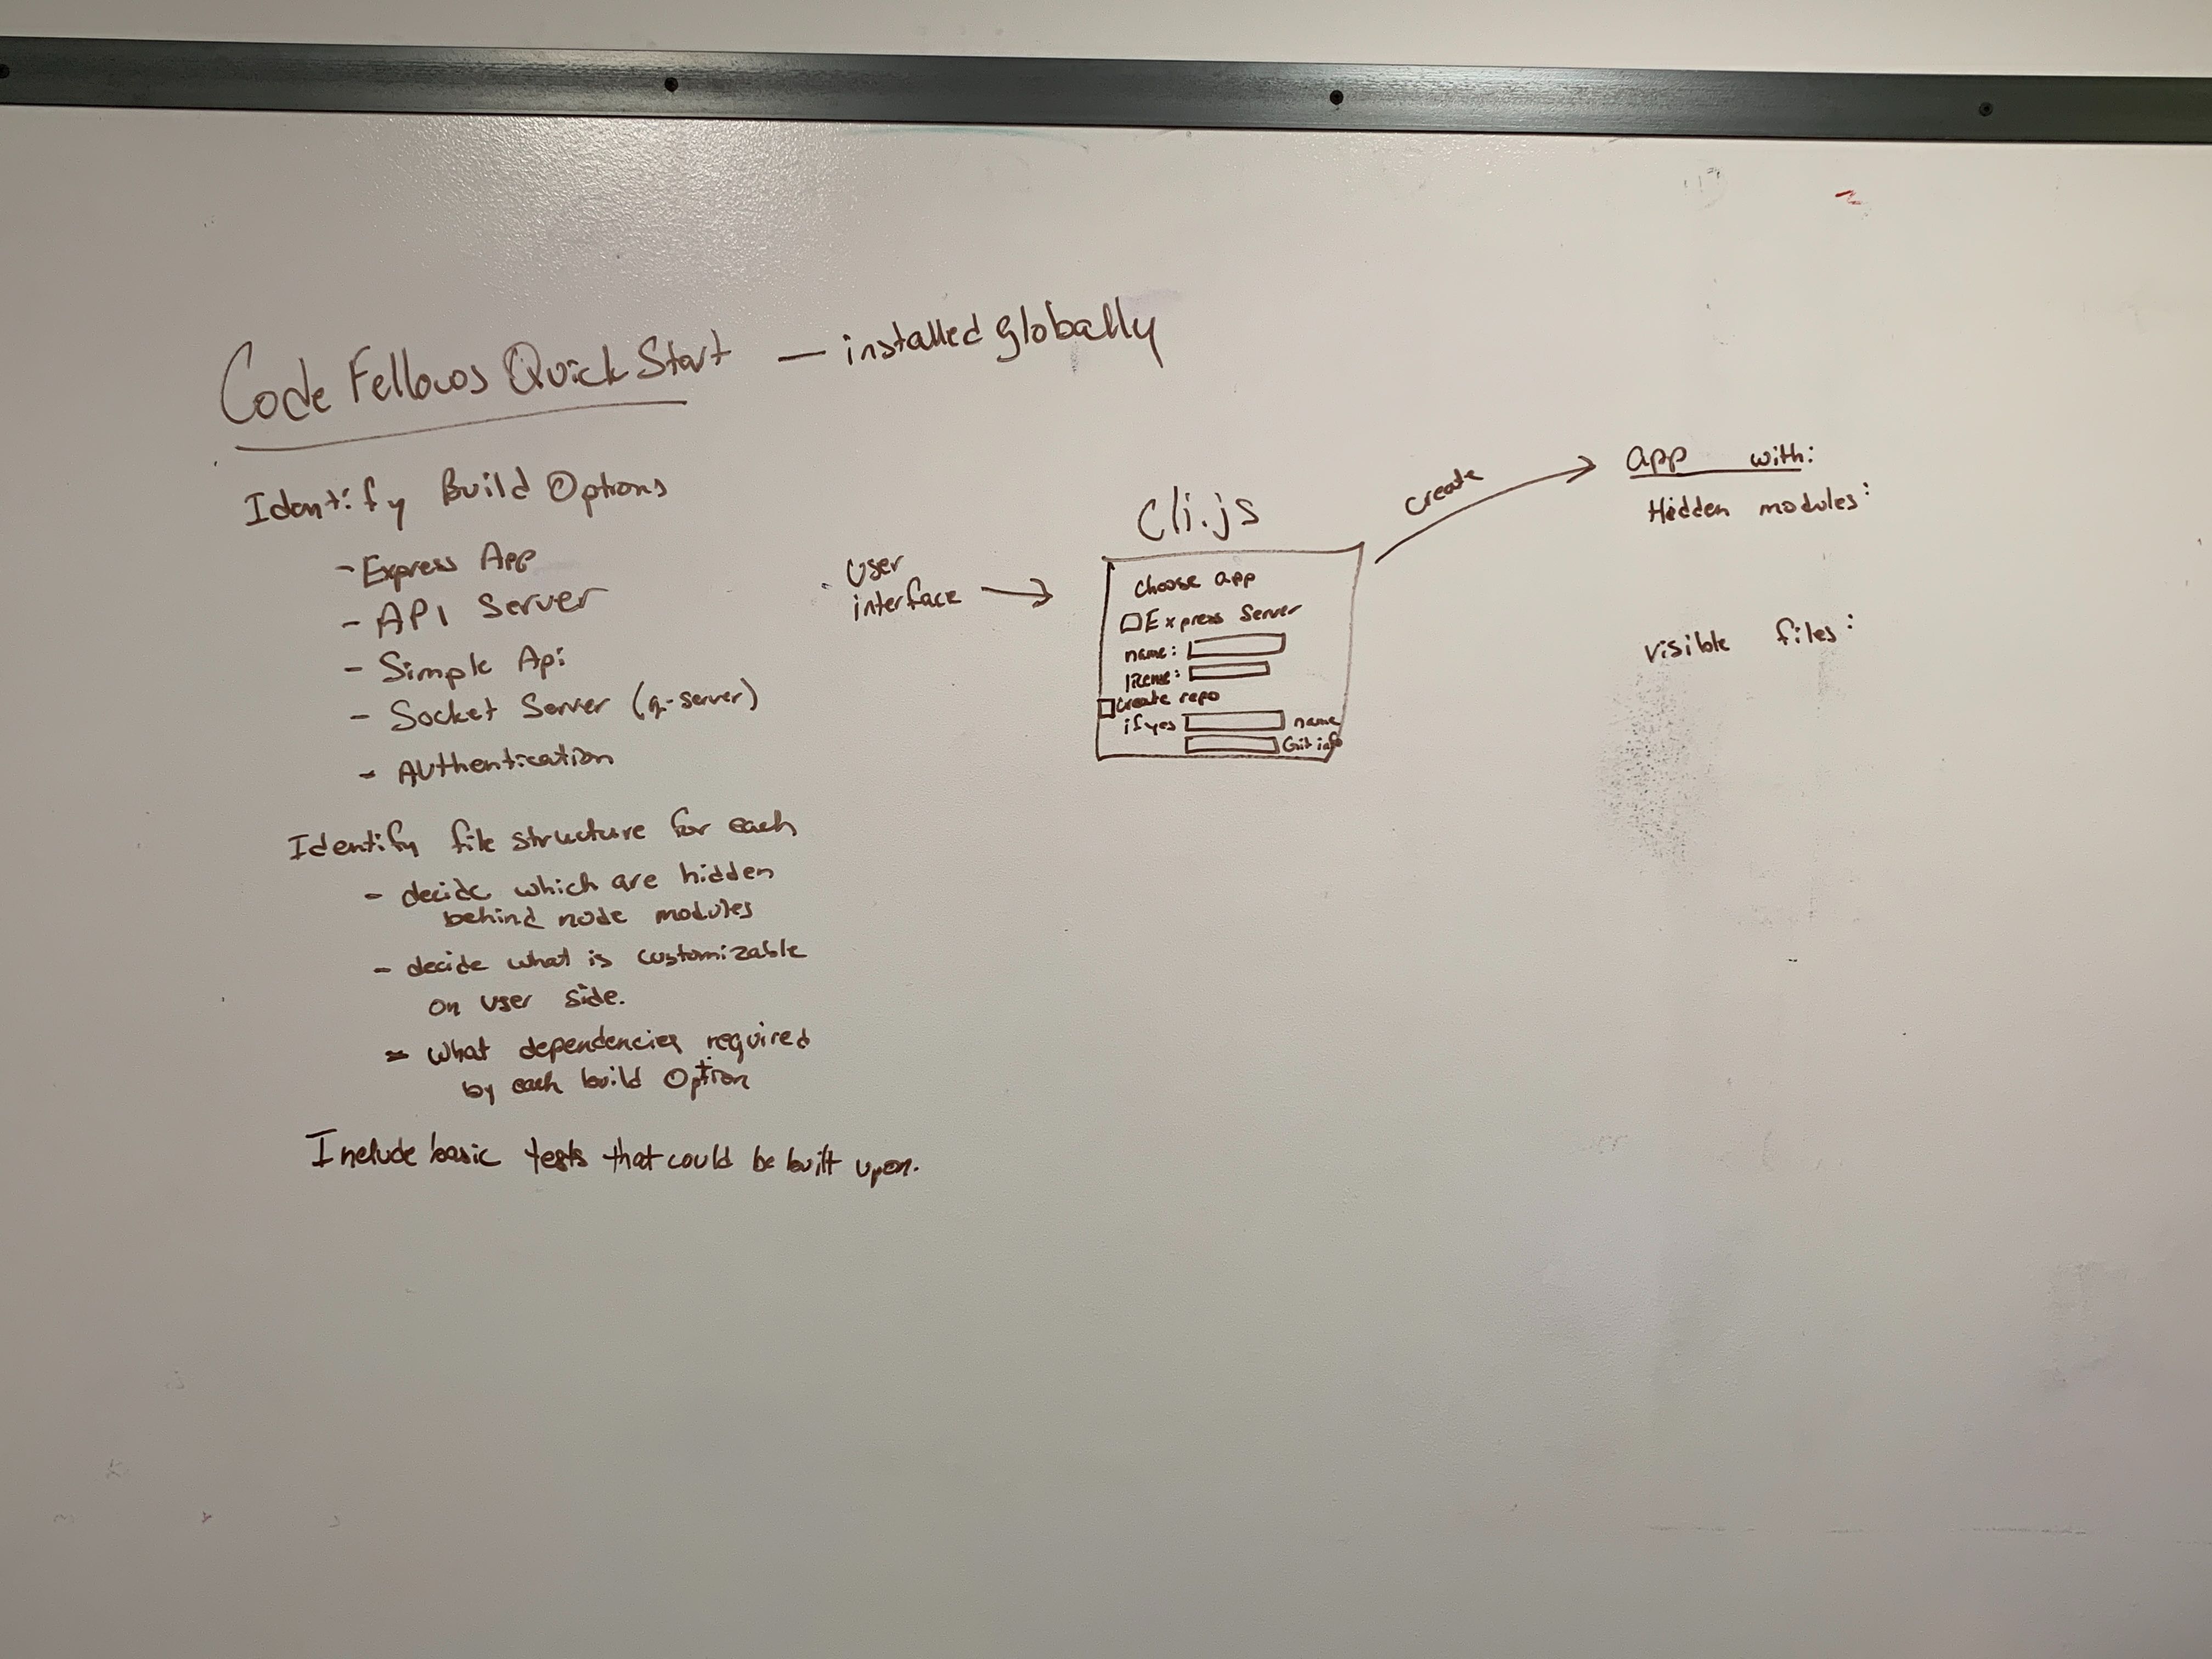 Code Fellows Quick Start — installed globally
Identify Build Options
- Express App
- API Server
- Simple Api
- Socket Server (q-server)
- Authentication
Identify file structure for each
- decide which are hidden
behind node modules
- decide what is customizable
on user side.
- what dependencies required
by each build option
Include basic tests that could be built upon.
User
interface
Cli.js
Choose app
Express Server
name:
create repo
if yes
name
Git info
create
app with:
Hidden modules:
visible files: